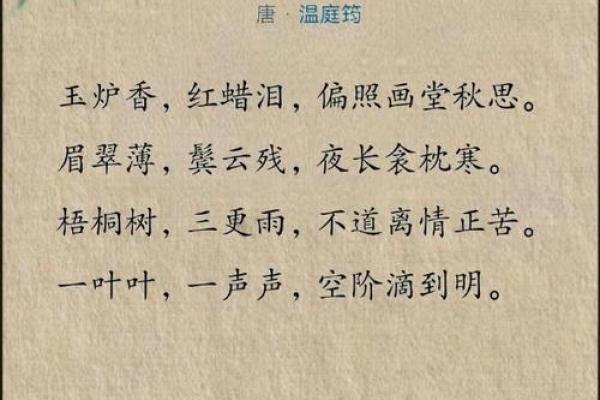 唐·温庭筠
玉炉香，红蜡泪，偏照画堂秋思。
眉翠薄，鬓云残，夜长衾枕寒。
梧桐树，三更雨，不道离情正苦。
一叶叶，一声声，空阶滴到明。